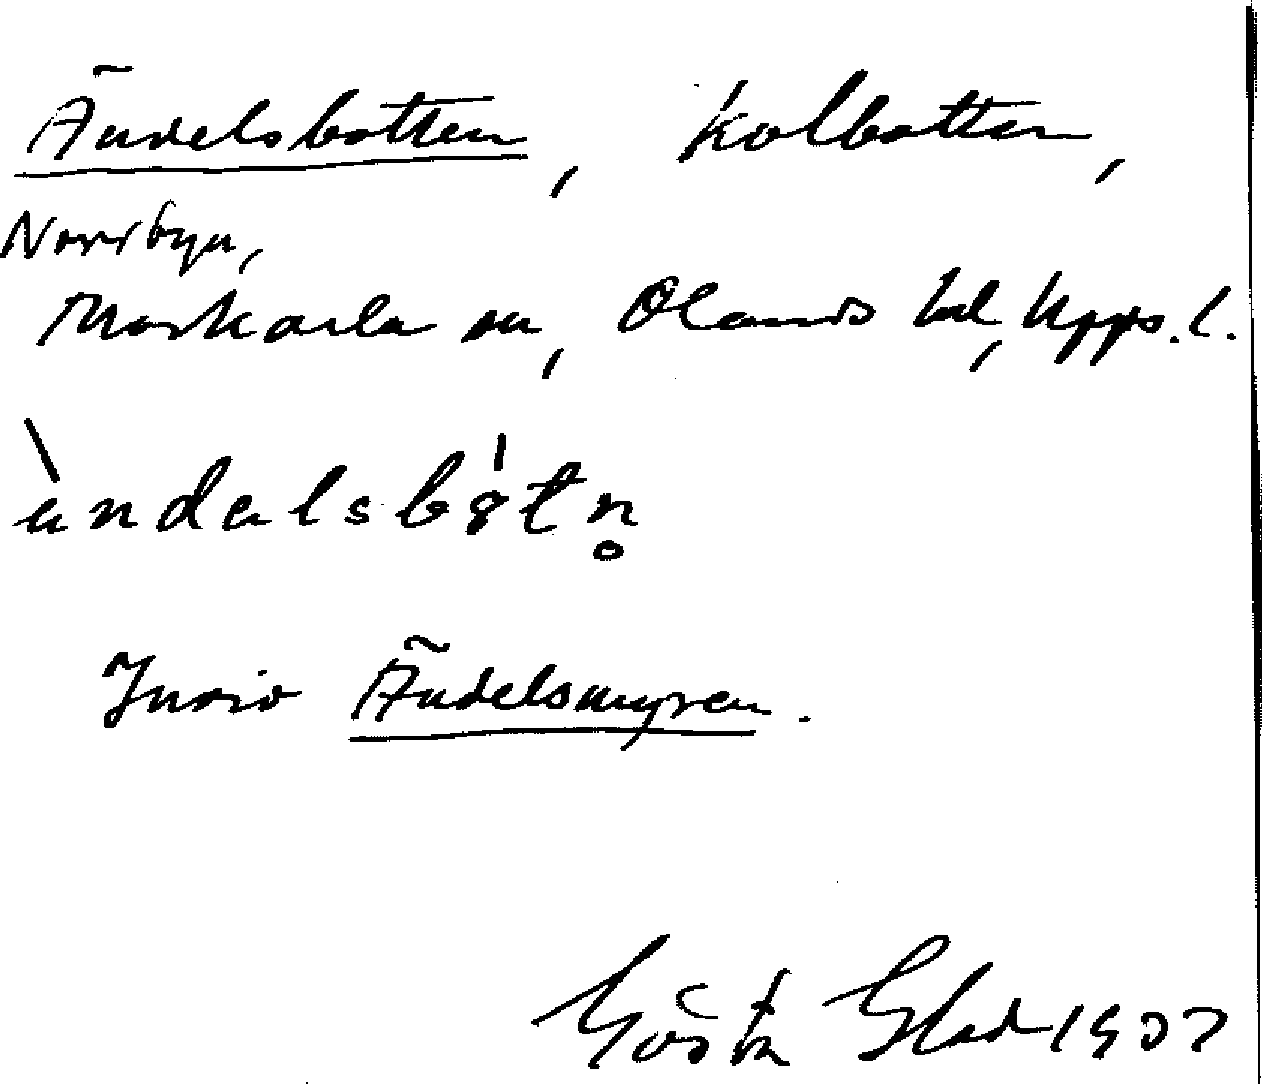 Ändelsbotten, Kolbotten,
Norrbyn,
Morkarla sn, Olands hd, Upps. l.
ändalsbȯtn̥
Invid Ändelsmyren.
Gösta Glad 1937